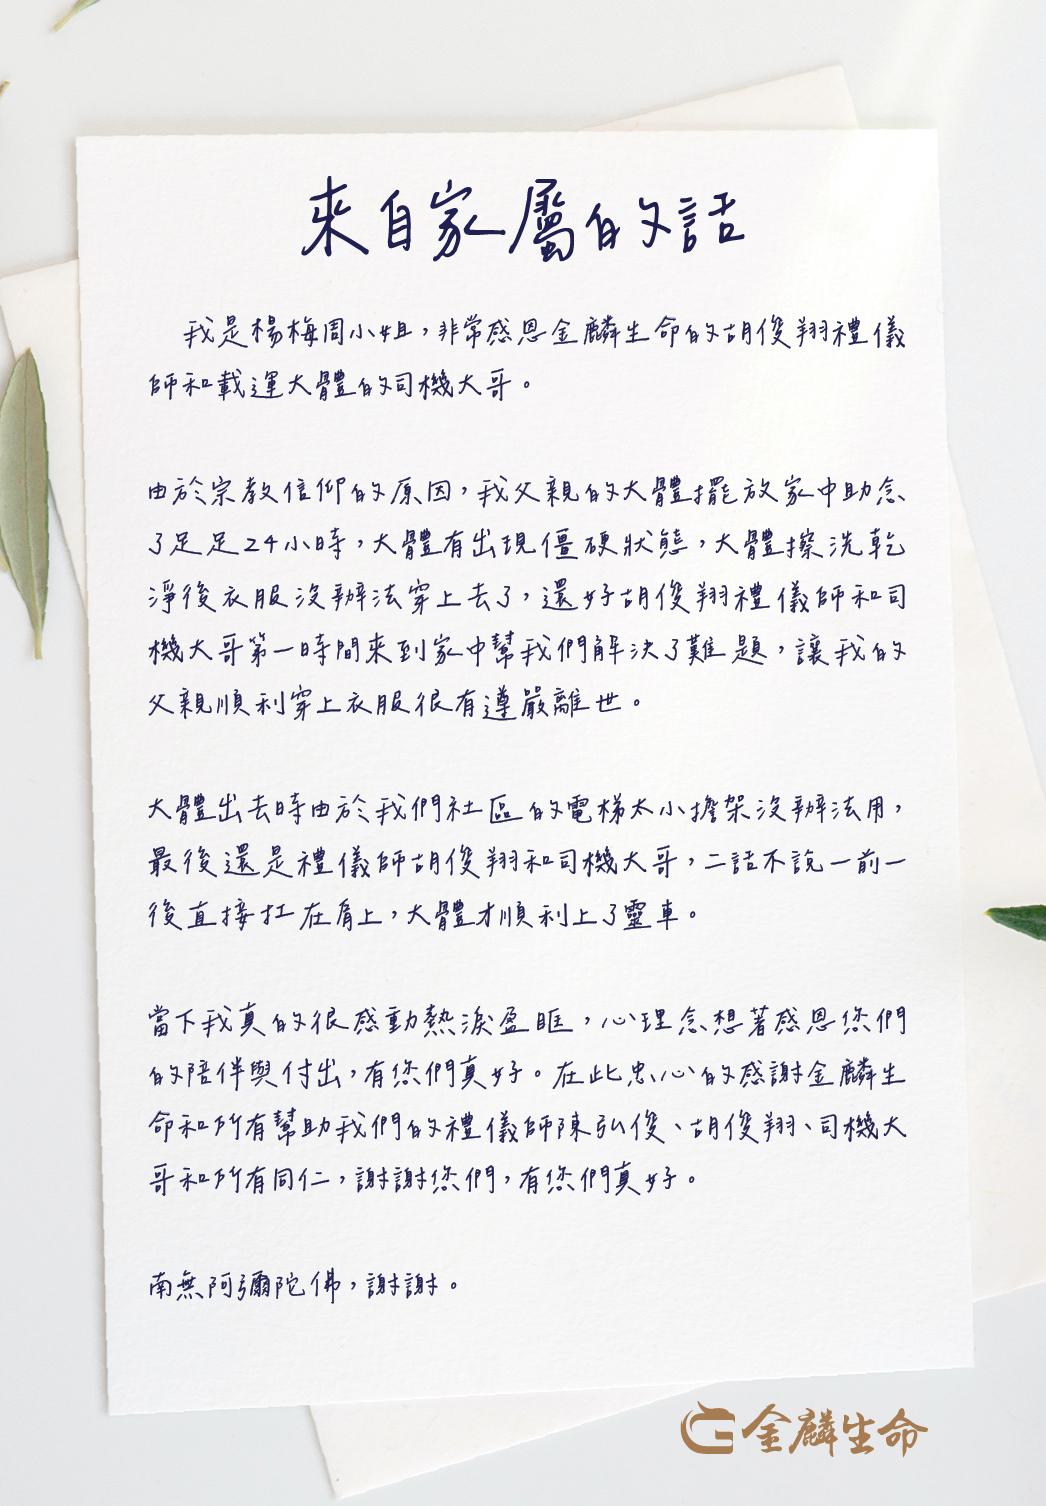 來自家屬的話
我是楊梅周小姐，非常感恩金麟生命的胡俊翔禮儀
師和載運大體的司機大哥。
由於宗教信仰的原因，我父親的大體擺放家中助念
了足足24小時，大體有出現僵硬狀態，大體擦洗乾
淨後衣服沒辦法穿上去了，還好胡俊翔禮儀師和司
機大哥第一時間來到家中幫我們解決了難題，讓我的
父親順利穿上衣服很有遵嚴離世。
大體出去時由於我們社區的電梯太小擔架沒辦法用，
最後還是禮儀師胡俊翔和司機大哥，二話不說一前一
後直接扛在肩上，大體才順利上了靈車。
當下我真的很感動熱淚盈眶，心理念想著感恩您們
的陪伴與付出，有您們真好。在此忠心的感謝金麟生
命和所有幫助我們的禮儀師陳弘俊、胡俊翔、司機大
哥和所有同仁，謝謝您們，有您們真好。
南無阿彌陀佛，謝謝。
金麟生命